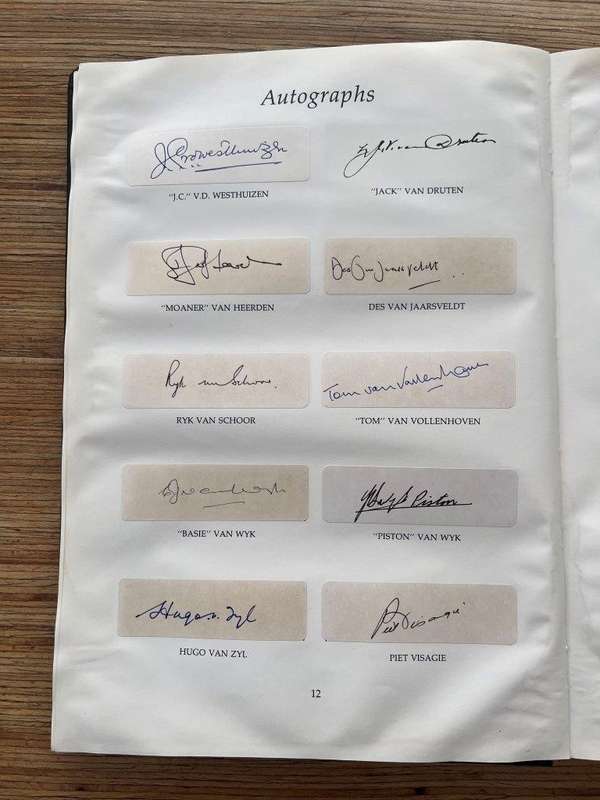 Autographs
"J.C." V.D. WESTHUIZEN
"JACK" VAN DRUTEN
"MOANER" VAN HEERDEN
Des van Jaarsveldt
DES VAN JAARSVELDT
Ryk van Schoor.
RYK VAN SCHOOR
Tom van Vollenhoven
"TOM" VAN VOLLENHOVEN
"BASIE" VAN WYK
Piston
"PISTON" VAN WYK
Hugo v. Zyl
HUGO VAN ZYL
Piet Visagie
PIET VISAGIE
12